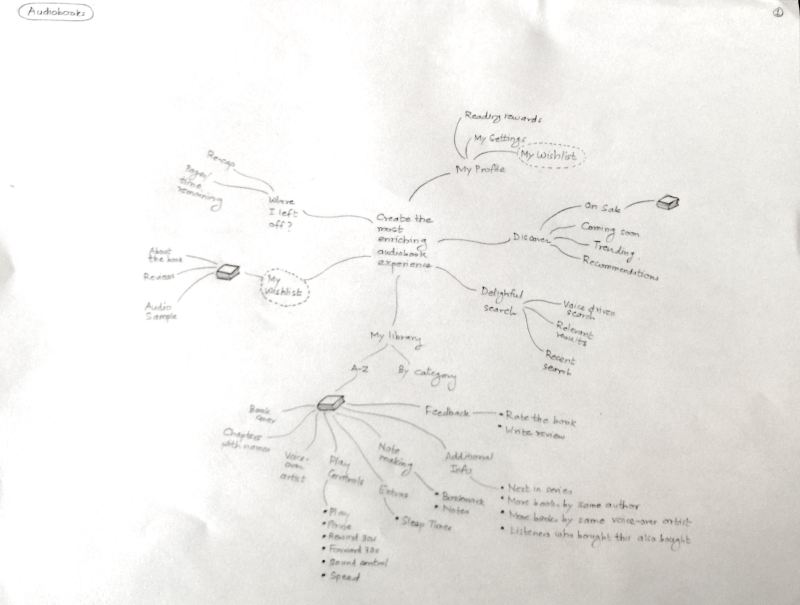 Audiobooks
1
Reading rewards
My Settings
My Wishlist
My Profile
Re-cap
Pages/
time
remaining
Where
I left
off?
Create the
most
enriching
audiobook
experience
Discover
On Sale
Coming soon
Trending
Recommendations
About
the book
Reviews
Audio
Sample
My
Wishlist
Delightful
search
Voice driven
search
Relevant
results
Recent
search
My library
A-Z
By category
Book
cover
Chapters
with names
Voice-
over
artist
Play
Controls
• Play
• Pause
• Rewind 30s
• Forward 30s
• Sound control
• Speed
Extras
• Sleep Timer
Note
making
• Bookmark
• Notes
Feedback
• Rate the book
• Write review
Additional
Info
• Next in series
• More books by same author
• More books by same voice-over artist
• Listeners who bought this also bought